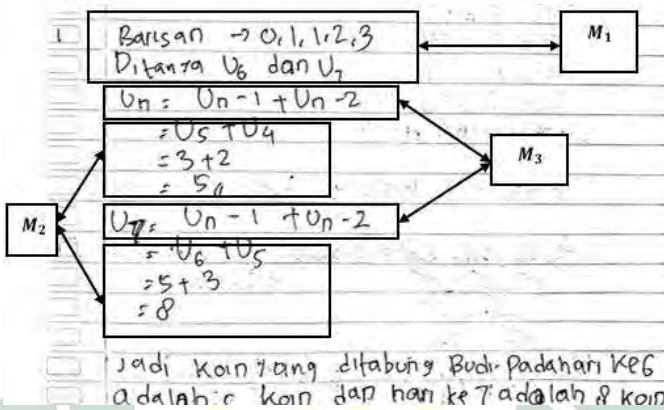 1 Barisan → 0, 1, 1, 2, 3
M₁
Ditanya U₆ dan U₇
Un = Un-1 + Un-2
= U5 + U4
= 3 + 2
M₃
= 5
U7 = Un-1 + Un-2
M₂
= U6 + U5
= 5 + 3
= 8
Jadi koin yang ditabung Budi Pada hari ke 6
adalah koin dan hari ke 7 adalah 8 koin